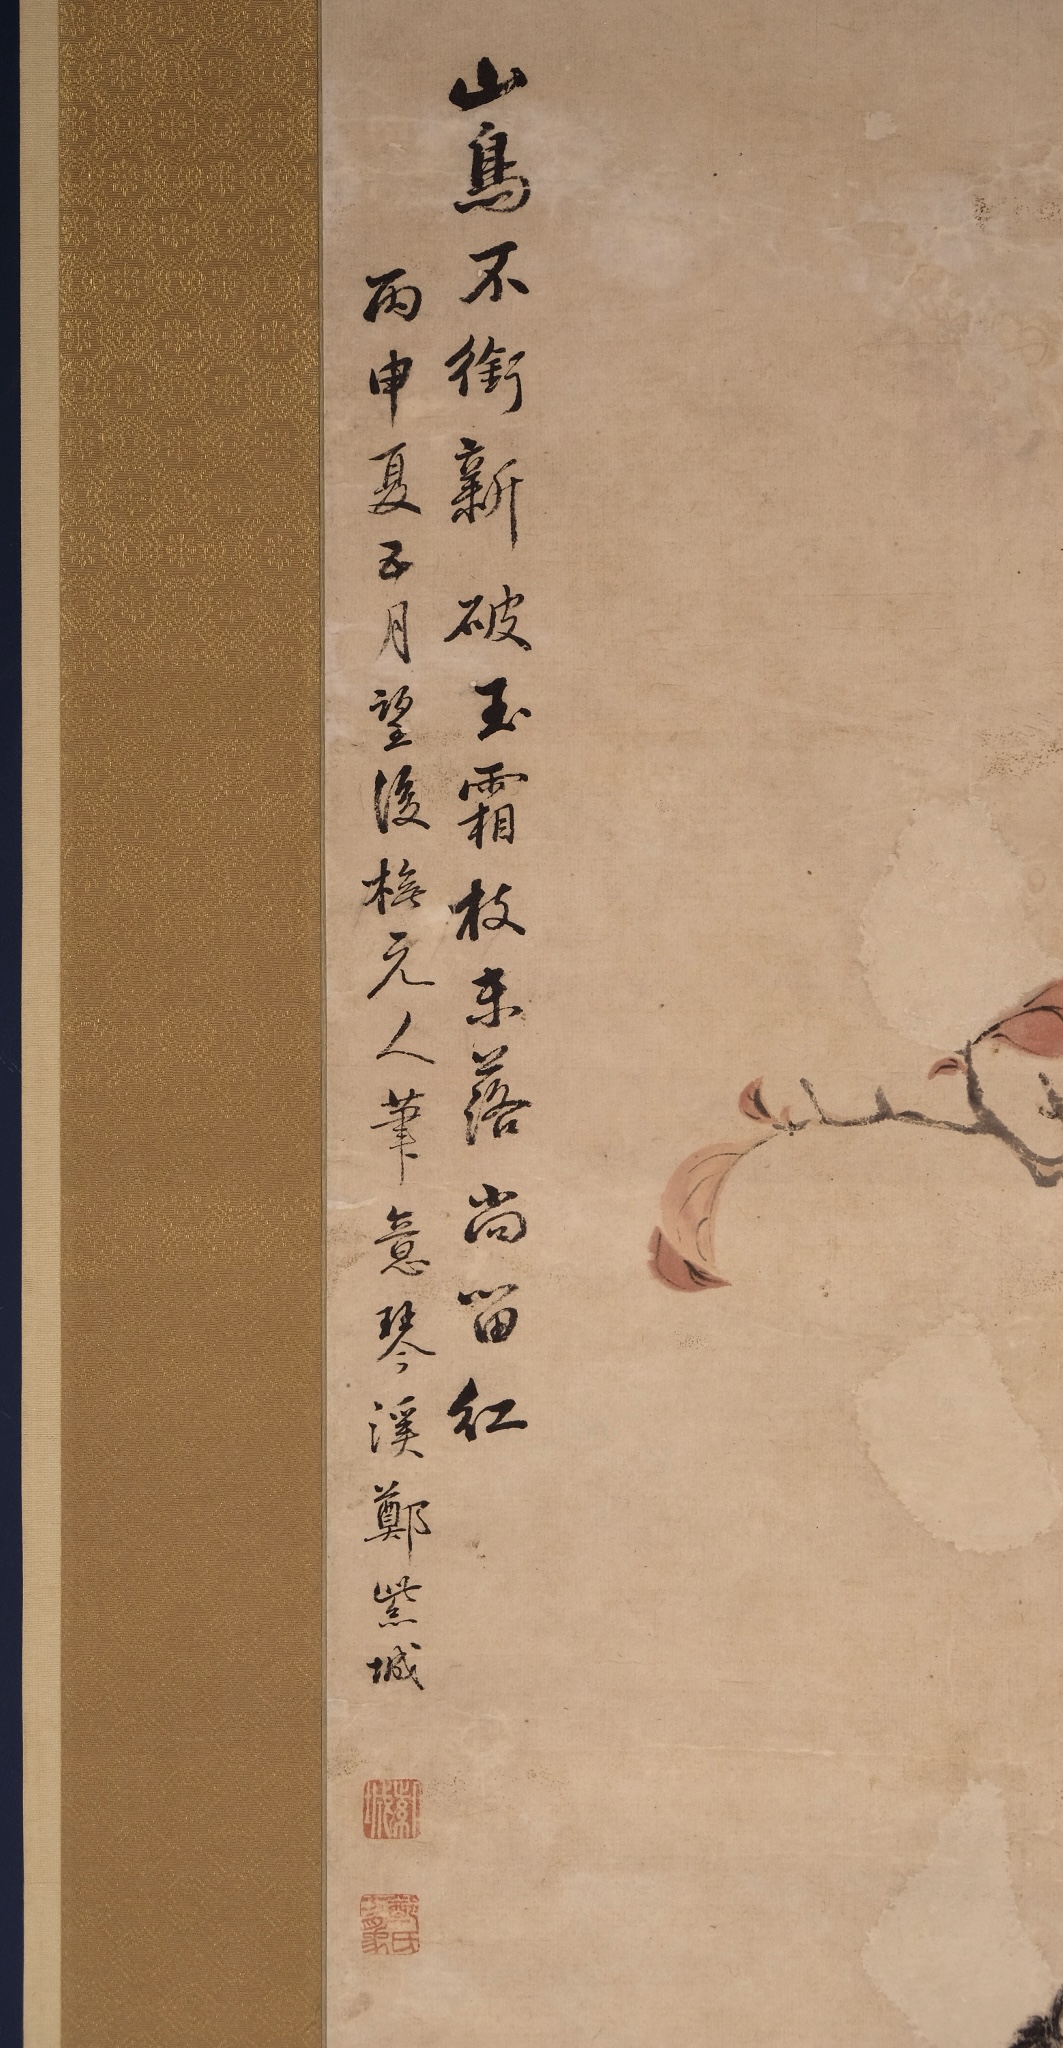 山鳥不銜新破玉霜枝未落尚留紅
丙申夏五月望後橅元人筆意琴溪鄭紫城
紫城
鄭氏